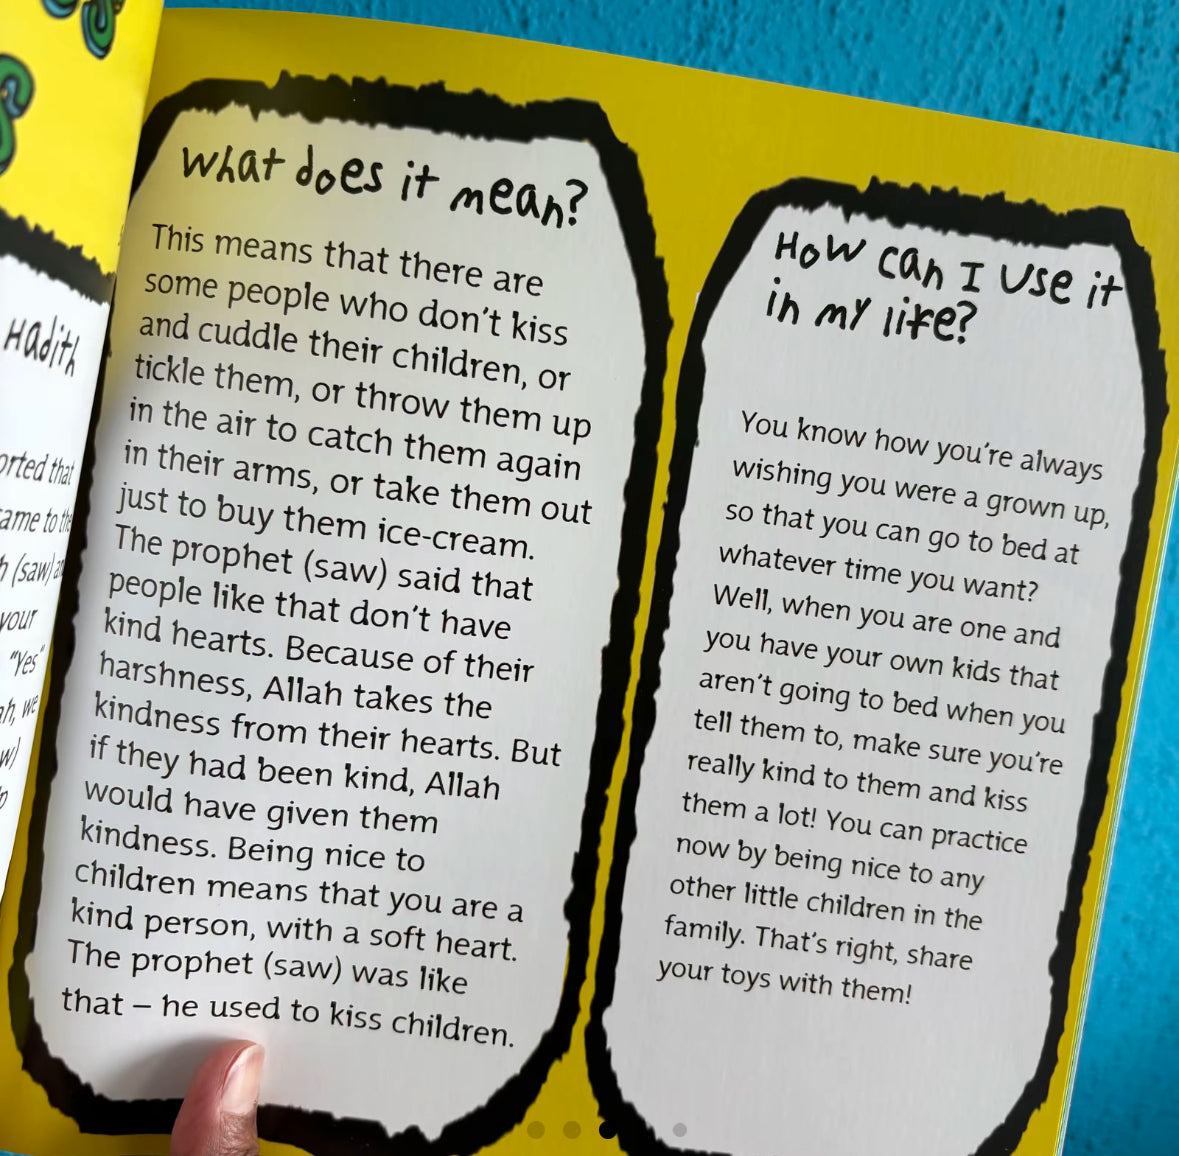 Hadith
orted that
ame to the
h (saw)
your
"Yes"
ah, we
What does it mean?
This means that there are
some people who don't kiss
and cuddle their children, or
tickle them, or throw them up
in the air to catch them again
in their arms, or take them out
just to buy them ice-cream.
The prophet (saw) said that
people like that don't have
kind hearts. Because of their
harshness, Allah takes the
kindness from their hearts. But
if they had been kind, Allah
would have given them
kindness. Being nice to
children means that you are a
kind person, with a soft heart.
The prophet (saw) was like
that – he used to kiss children.
How can I use it
in my life?
You know how you're always
wishing you were a grown up,
so that you can go to bed at
whatever time you want?
Well, when you are one and
you have your own kids that
aren't going to bed when you
tell them to, make sure you're
really kind to them and kiss
them a lot! You can practice
now by being nice to any
other little children in the
family. That's right, share
your toys with them!